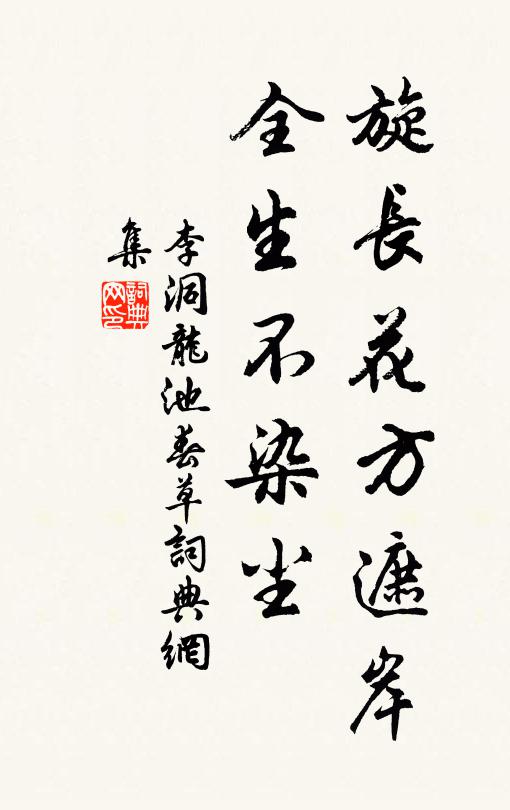 旋長花方遮岸
全生不染尘
李洞龍池春草詞典網
集
詞典
网印